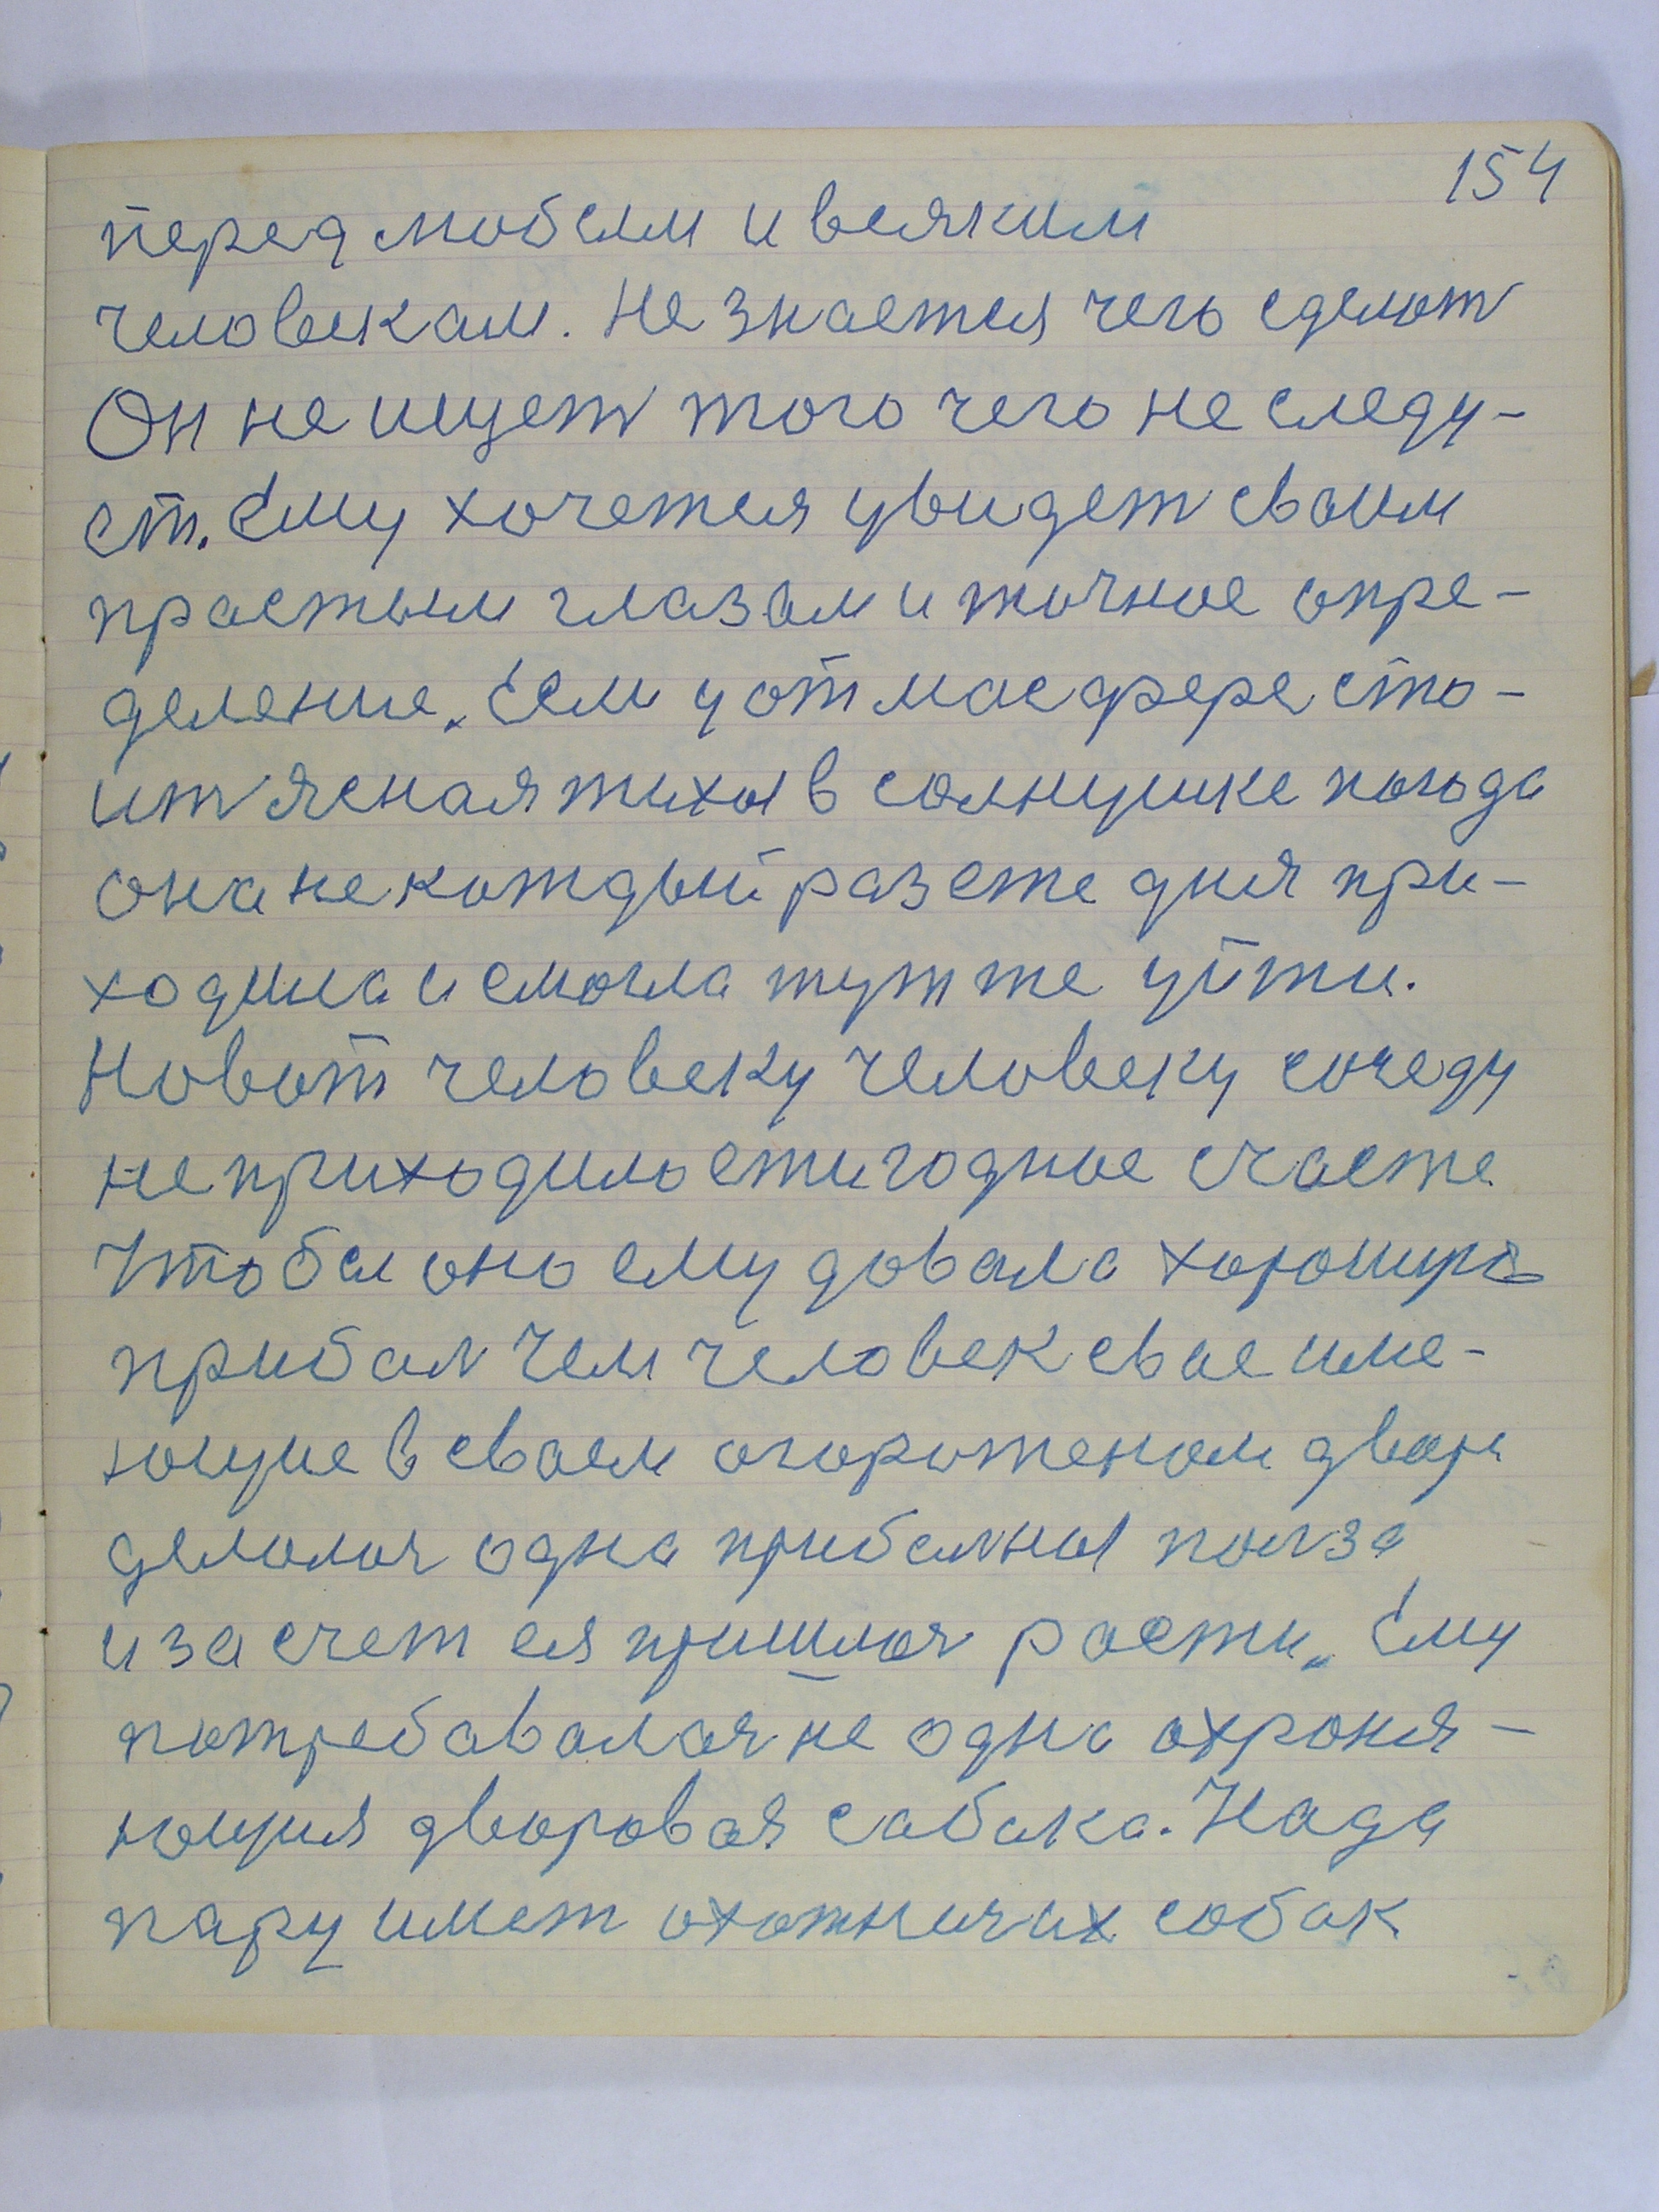 154
перед любым и всяким
человекам. Не знается чего сделат
Он не ищет того чего не следу-
ет. Ему хочется увидет сваим
прастым глазам и точное опре-
деление. Если у отмасфере сто-
ит ясная тихая в солнушке погода
она не котдый раз сте дня при-
ходила и смогла тут же уйти.
Но вот человеку человеку соседу
не приходило стигодное счасте
Чтобы оно ему довала хорошую
прибал Чем человек свае име-
ющие в сваем огоротеном дворе
делолоя одна прибалная полза
и за счет ея пришлоя расти. Ему
потребавалоя не одна охроня-
ющия дворовая сабака. Нада
пару имет охотничих собак